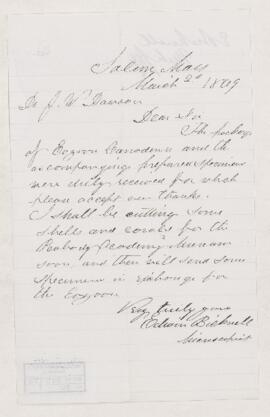 Salem, Mass
March 2d 1869
Dr J. W. Dawson
Dear Sir
The package
of Eozoon Canadense and the
accompanying prepared specimens
were duly received for which
please accept our thanks.
I shall be cutting some
shells and corals for the
Peabody Academy Museum
soon, and then will send some
specimens in exchange for
the Eozoon.
Very truly yours
Edwin Bicknell